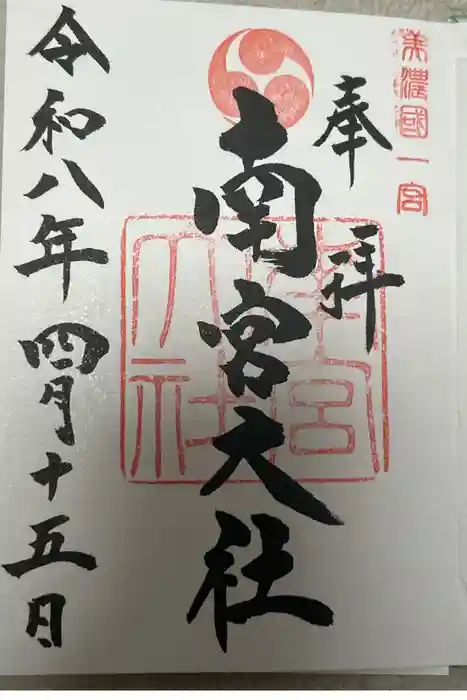 美濃國一宮
奉拝
南宮大社
南宮大社
令和八年四月十五日